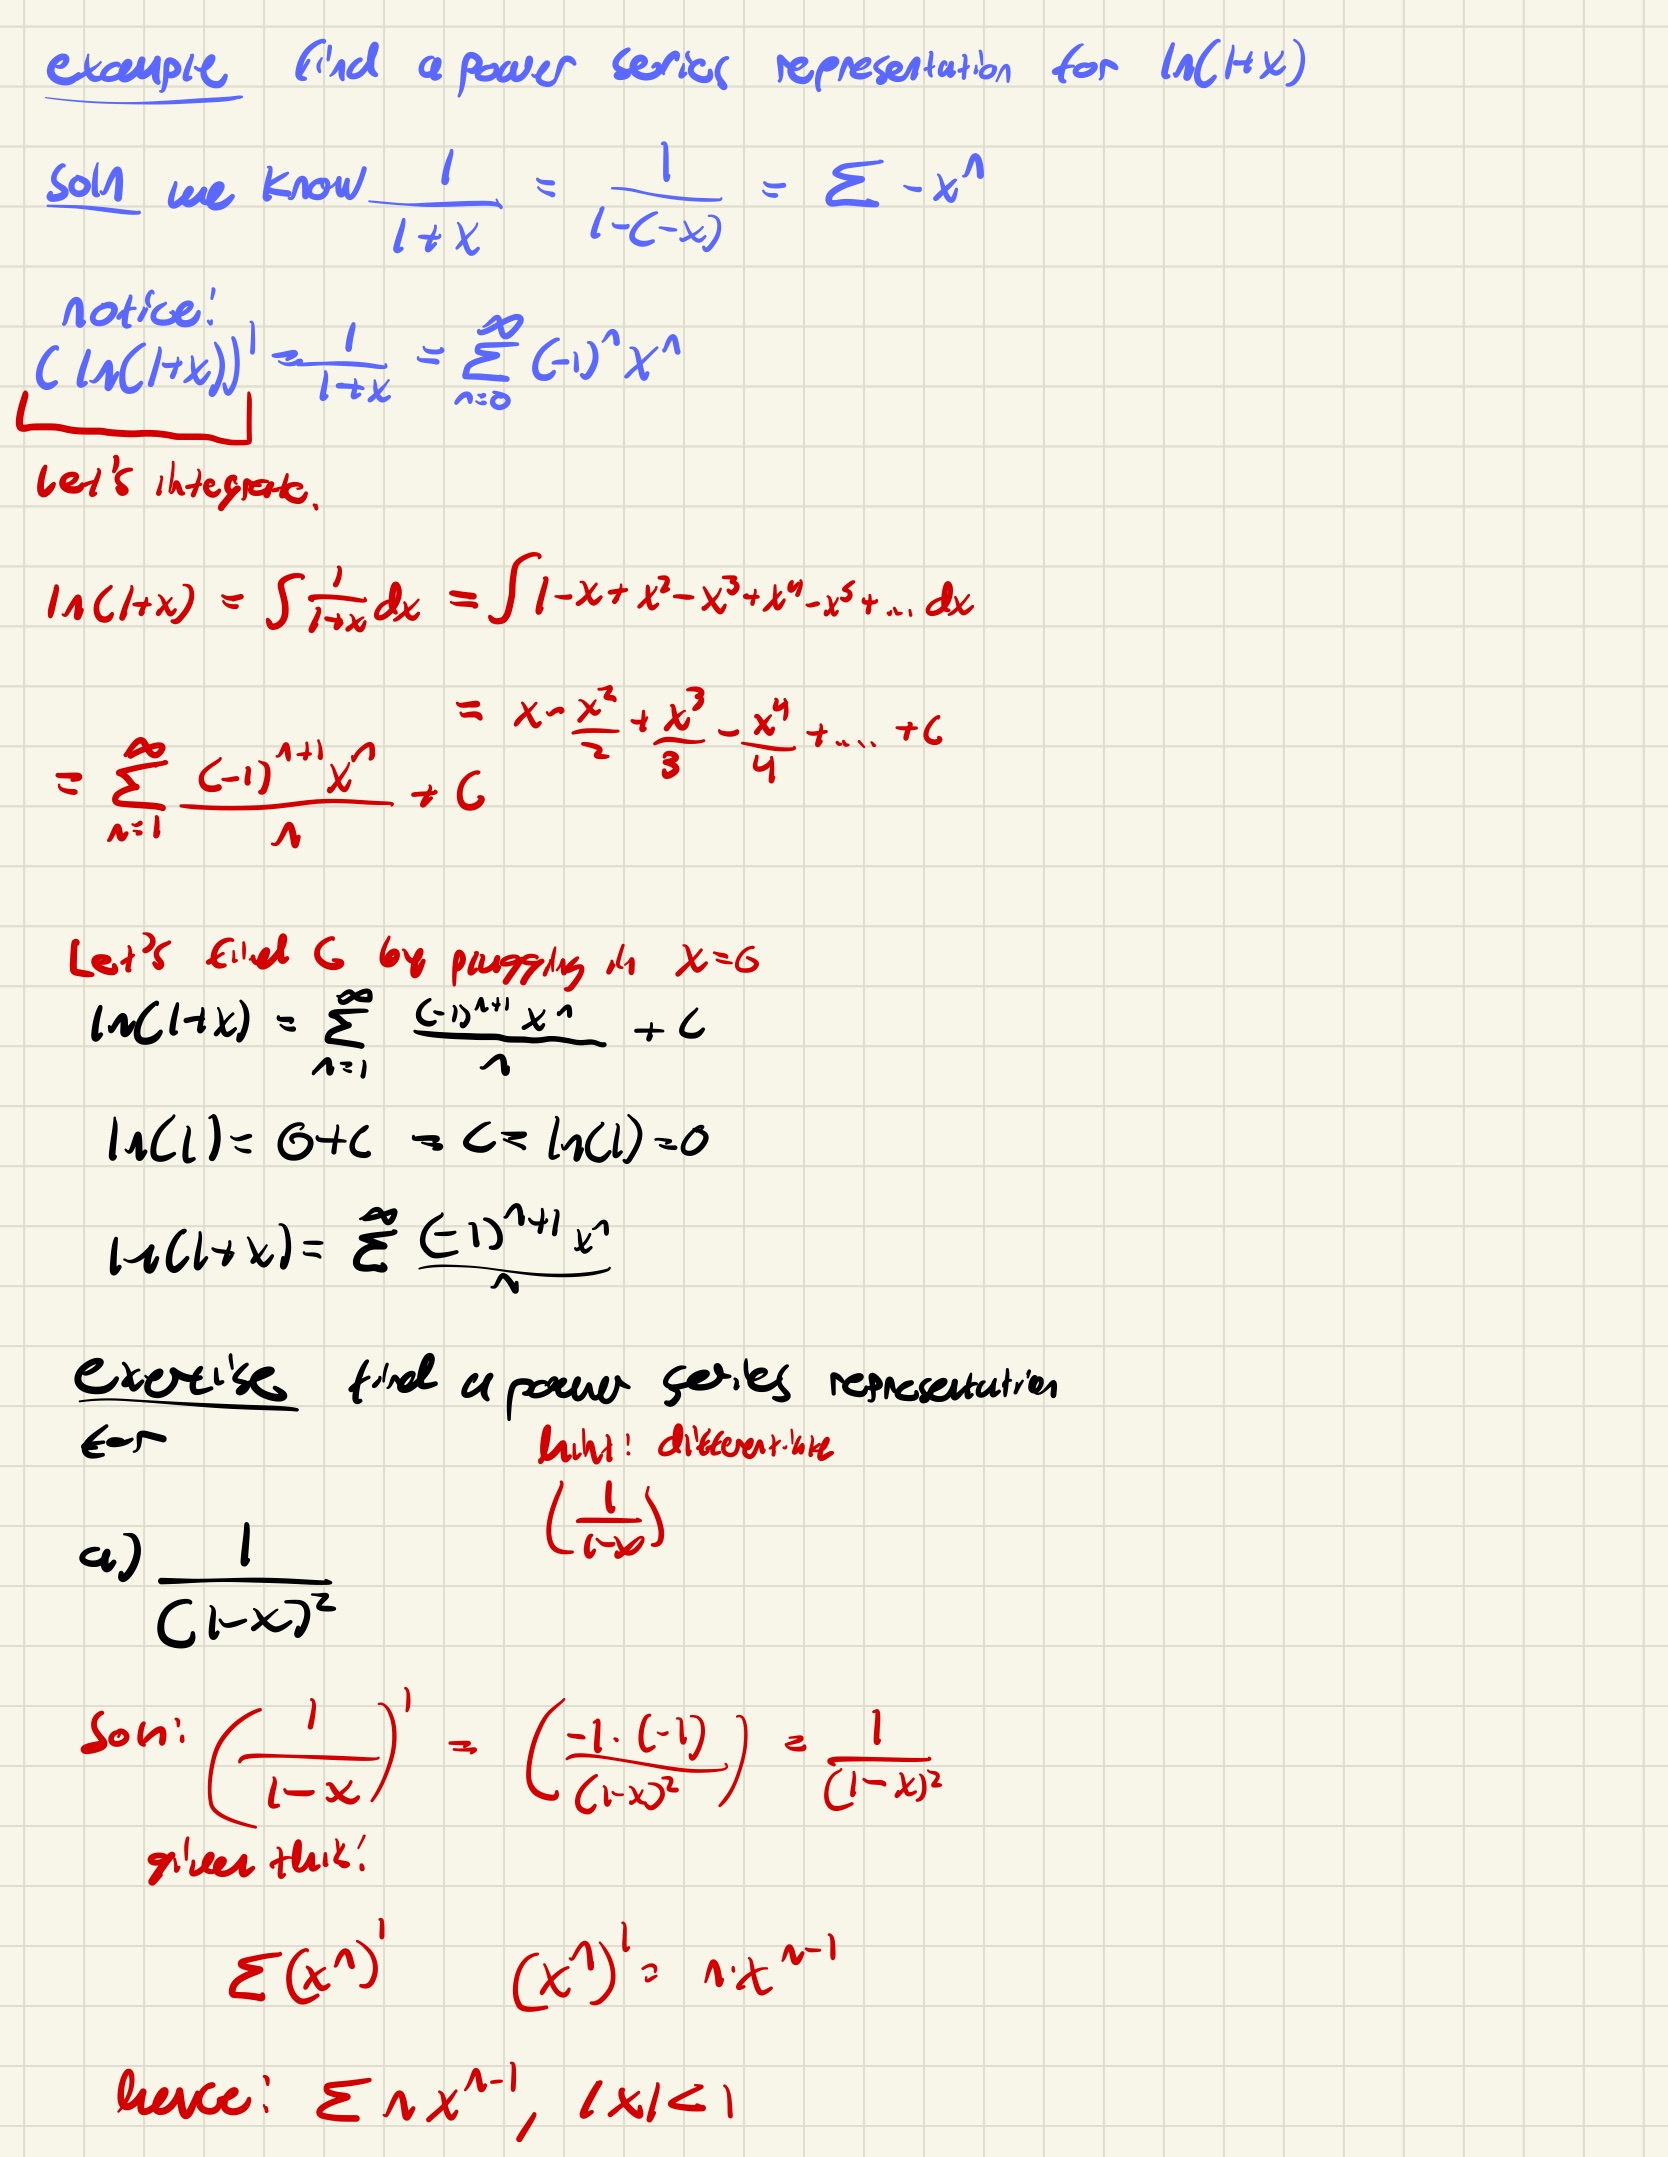 example find a power series representation for ln(1+x)
soln we know 1/(1+x) = 1/(1-(-x)) = Σ -x^n
notice!
(ln(1+x))' = 1/(1+x) = Σ_{n=0}^{∞} (-1)^n x^n
Let's integrate.
ln(1+x) = ∫ 1/(1+x) dx = ∫ 1-x+x^2-x^3+x^4-x^5+... dx
= x - x^2/2 + x^3/3 - x^4/4 + .... + C
= Σ_{n=1}^{∞} (-1)^{n+1} x^n / n + C
Let's find C by plugging in x=0
ln(1+x) = Σ_{n=1}^{∞} (-1)^{n+1} x^n / n + C
ln(1) = 0+C = C = ln(1) = 0
ln(1+x) = Σ^{∞} (-1)^{n+1} x^n / n
exercise find a power series representation
for
hint! differentiate
(1/(1-x))
a) 1/(1-x)^2
Soln: (1/(1-x))' = (-1·(-1)/(1-x)^2) = 1/(1-x)^2
given this!
Σ(x^n)' (x^n)' = n·x^{n-1}
hence: Σ n x^{n-1}, |x|<1